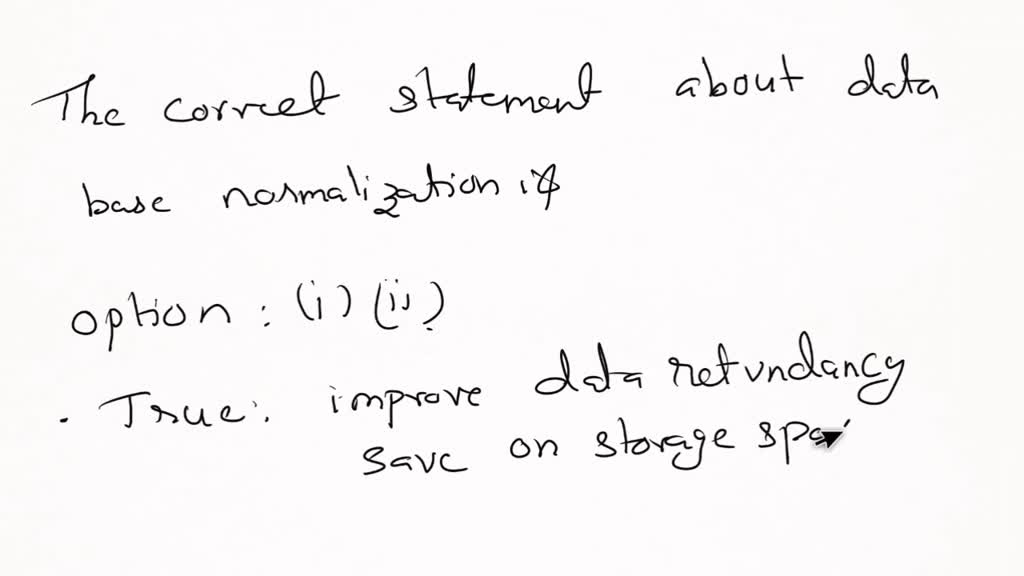 The correct statement about data
base normalization is
option : (i) (ii)
. True : improve data retundancy
save on storage spa